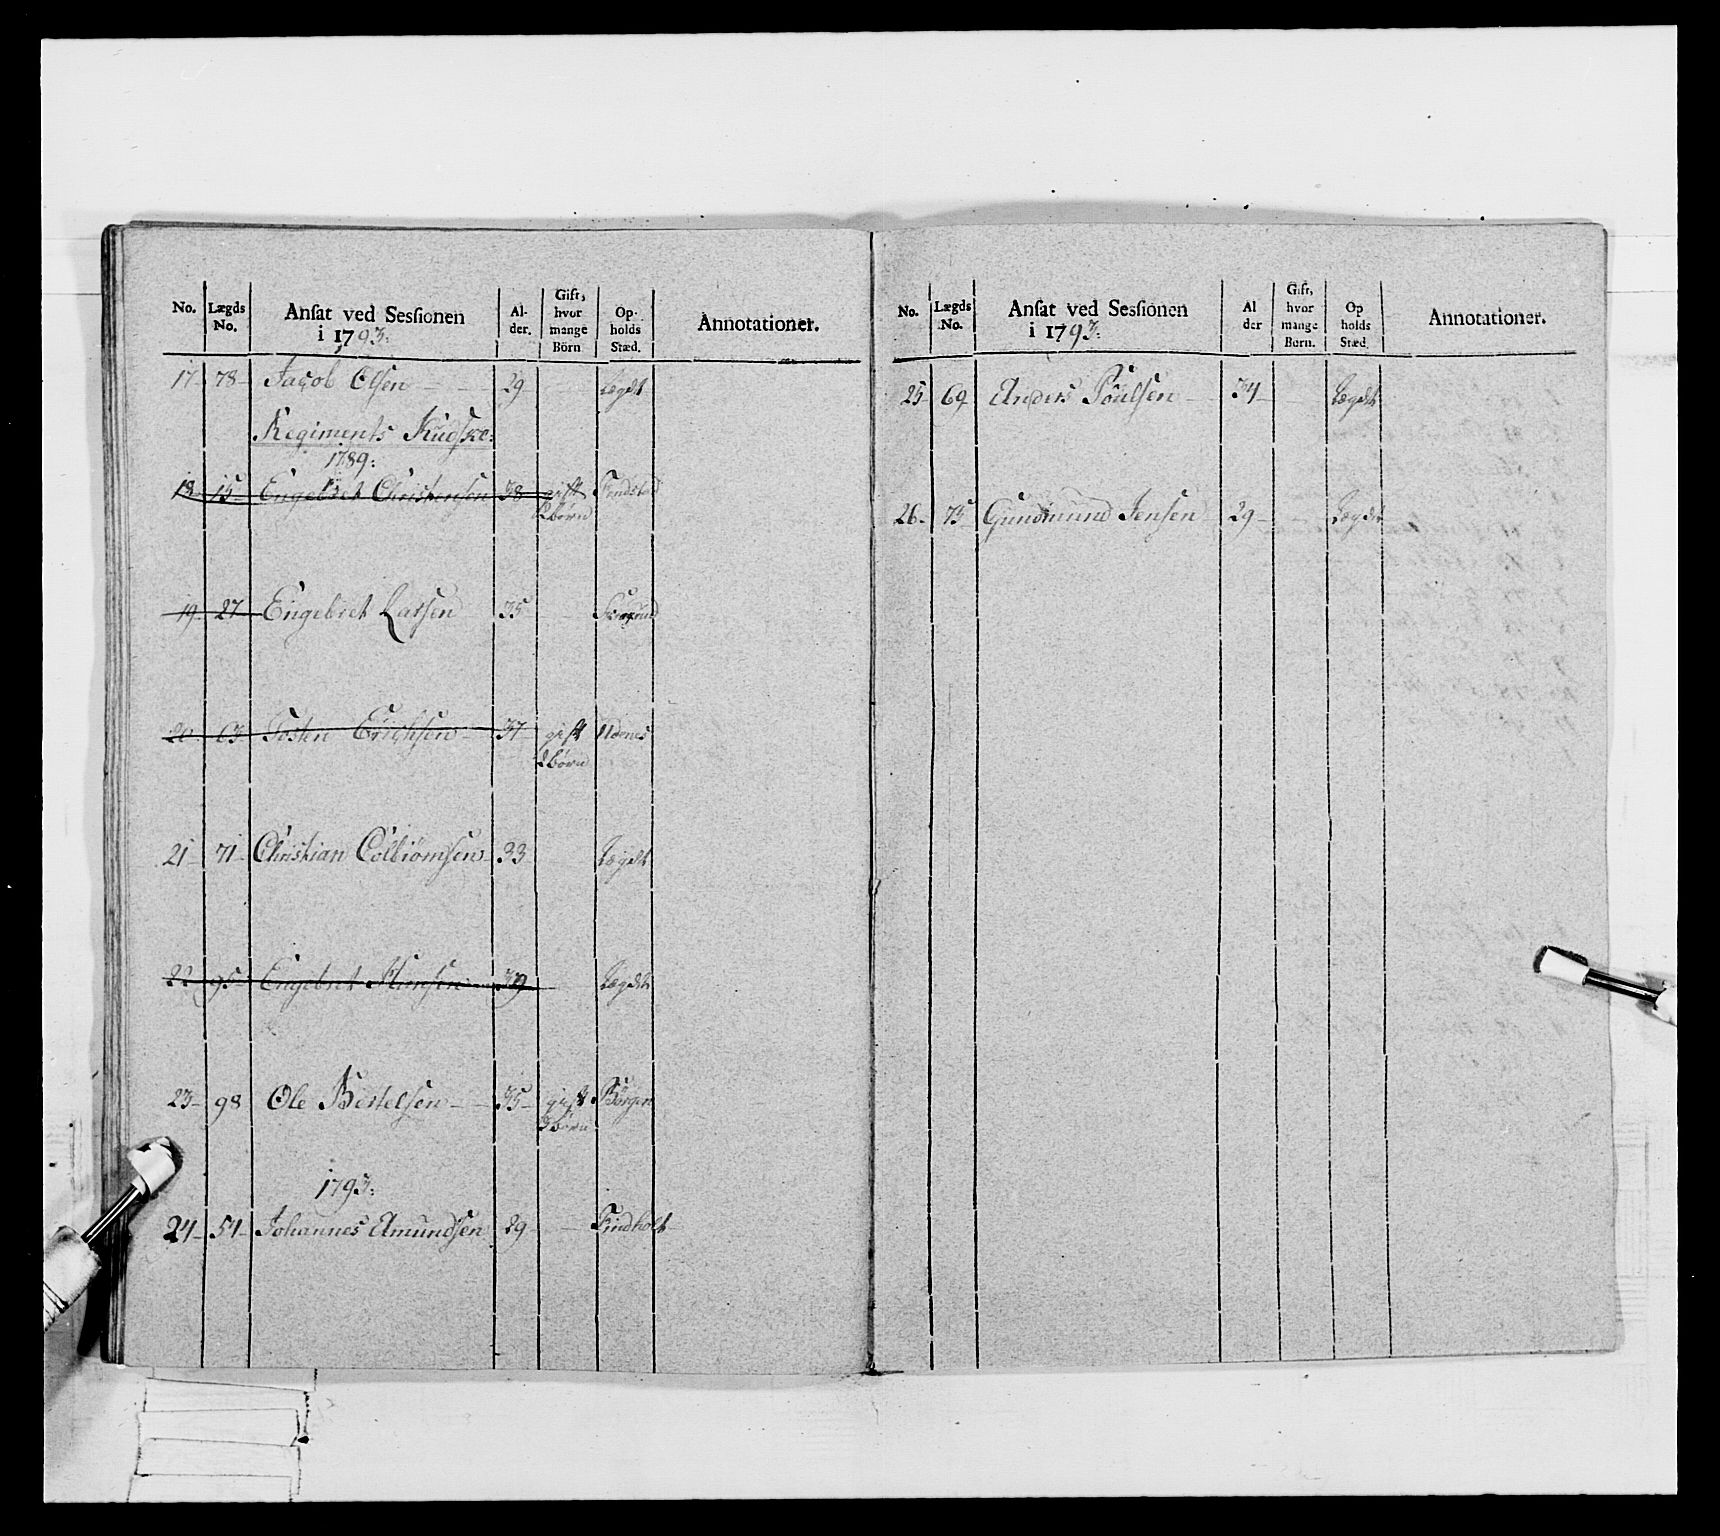 No. Lægds No. Ansat ved Sessionen i 1793. Alder. Gift, hvor mange Börn Opholds Stæd. Annotationer.
17 78 Jacob Olsen 29 Lægdet
Regiments Kudske
1789:
18 15 Engebret Christensen 38 gift
2 børn
19 27 Engebret Larsen 35
20 63 Tosten Erichsen 37 gift
2 børn
21 71 Christian Colbiørnsen 33 Lægdet
22 95 Engebret 39 Lægdet
23 98 Ole Bertelsen 35 gift Börgen
3 børn
1793:
24 54 Johannes Amundsen 29 Findholt
No. Lægds No. Ansat ved Sessionen i 1793. Al der Gift, hvor mange Børn. Op holds Stæd. Annotationer.
25 69 Anders Poulsen 34 Lægdet
26 75 Gundmund Jensen 29 Lægdet